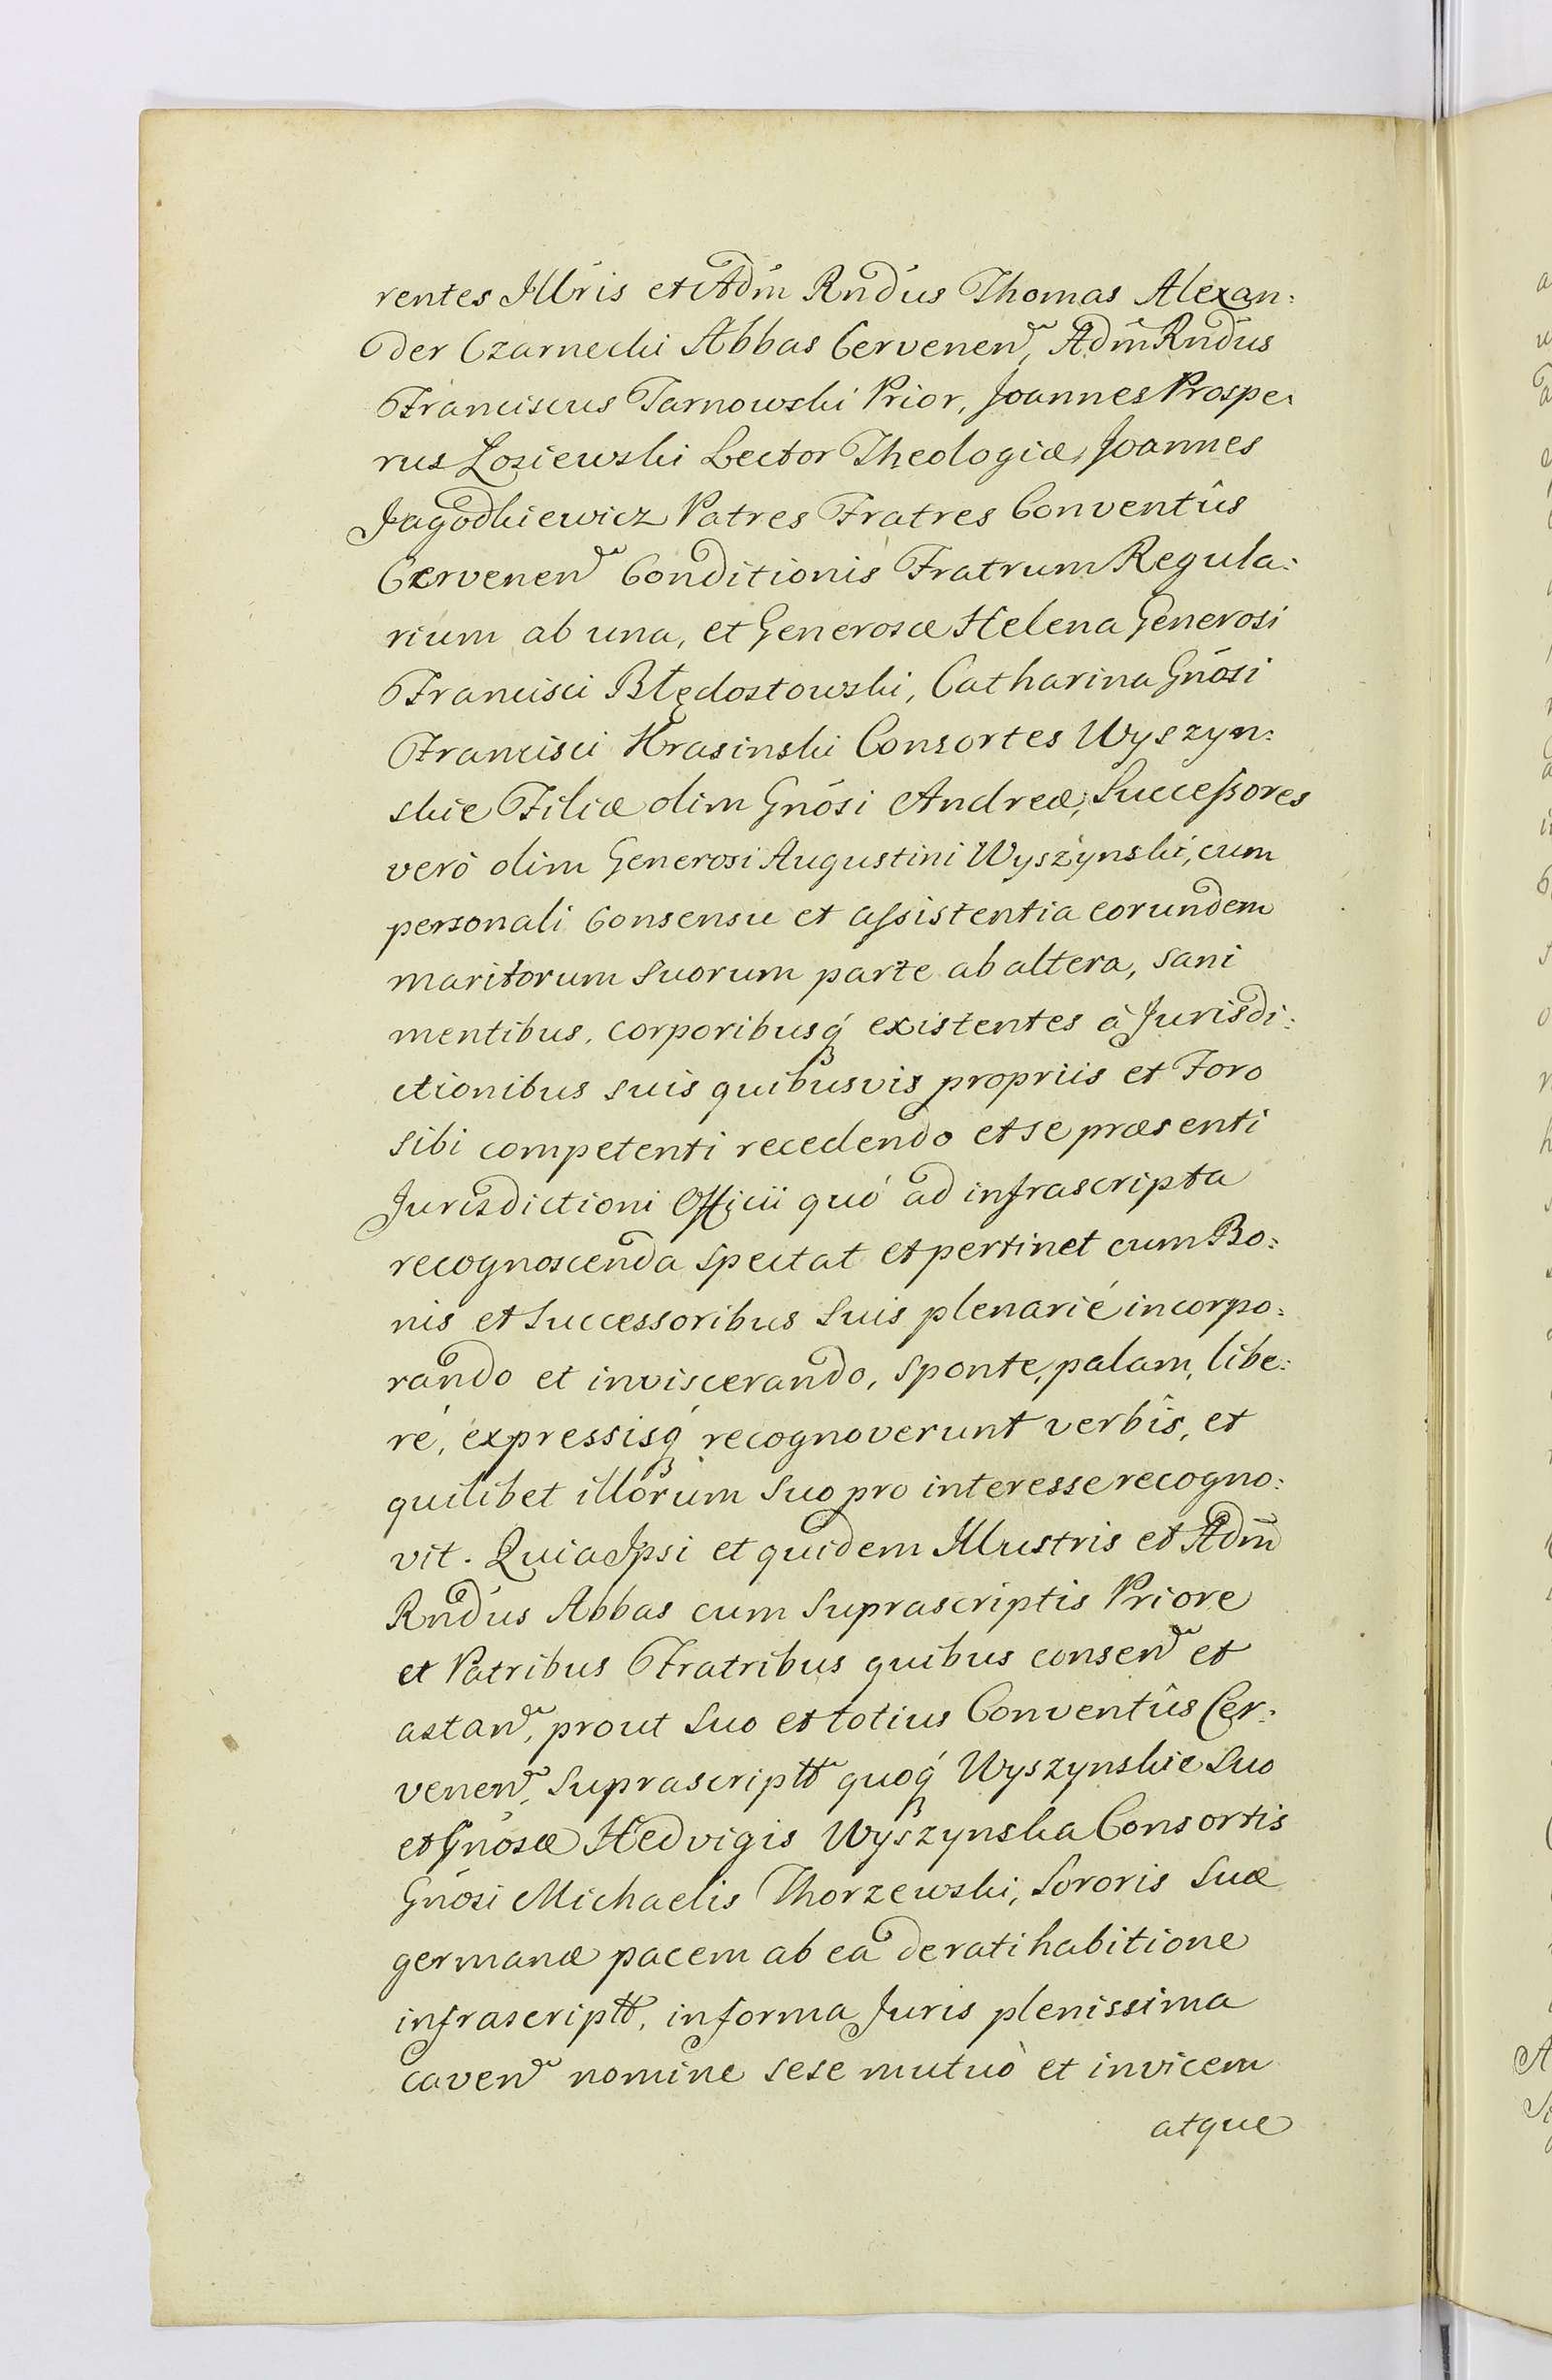 rentes Illris et Adm̃ Rndus Thomas Alexan:
der Czarnecki Abbas Cervenen̄, Adm̃ Rndus
Franciscus Tarnowski Prior, Joannes Prospe:
rus Łosiewski Lector Theologiæ, Joannes
Jagodkiewicz Patres Fratres Conventûs
Czervenen̄ Conditionis Fratrum Regula:
rium ab una, et Generosæ Helena Generosi
Francisci Błędostowski, Catharina Gnosi
Francisci Krasinski Consortes Wyszyn:
skie Filiæ olim Gnosi Andreæ, Successores
verò olim Generosi Augustini Wyszynski, cum
personali Consensu et assistentia eorundem
maritorum suorum parte ab altera, sani
mentibus, corporibusq́ existentes à Jurisdi:
ctionibus suis quibusvis propriis et Foro
sibi competenti recedendo et se præsenti
Jurisdictioni Officii quó ad infrascripta
recognoscenda spectat et pertinet cum Bo:
nis et Successoribus Suis plenarié incorpo:
rando et inviscerando, sponte, palam, libe:
ré, expressisq́ recognoverunt verbîs, et
quilibet illorum Suo pro interesse recogno:
vit. Quia Ipsi et quidem Illustris et Adm̃
Rndus Abbas cum Suprascriptis Priore
et Patribus Fratribus quibus consen̄ et
astan̄, prout Suo et totius Conventûs Cer:
venen̄, Suprascriptt̄ quoq́ Wyszynskie Suo
et Gnosæ Hedvigis Wyszynska Consortis
Gnosi Michaelis Thorzewski, Sororis Suæ
germanæ pacem ab ea de ratihabitione
infrascriptt̄, in forma Juris plenissima
caven̄ nomine sese mutuò et invicem
atque